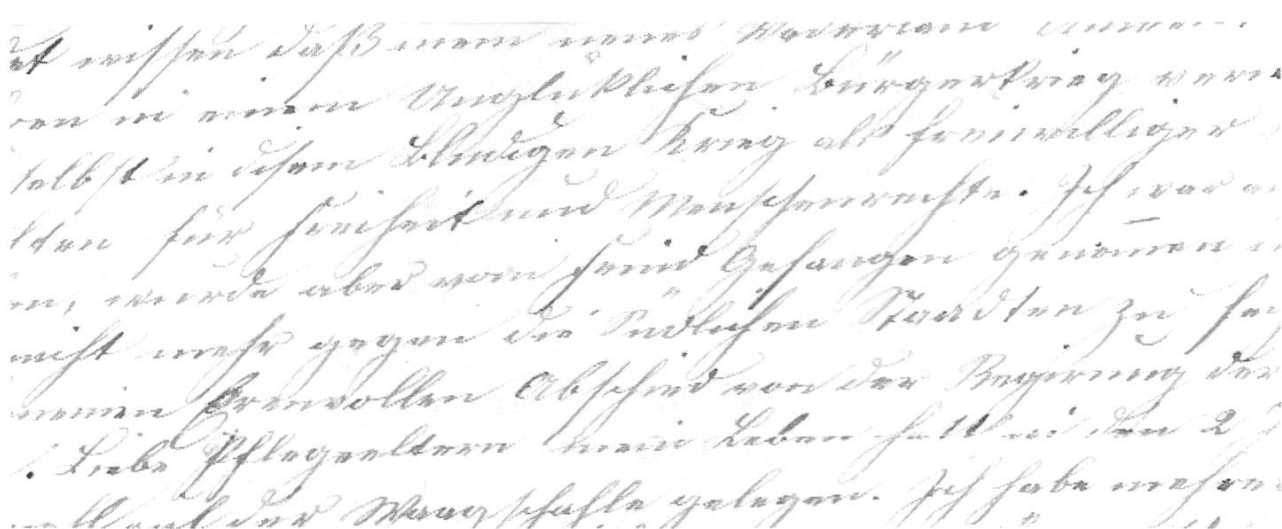 wissen daß mein neues Vaterland
in einem Unglüklichen Bürgerkrieg
selbst in disem Bludigen Krieg als freiwilliger
für Freiheit und Menschenrechte. Ich war
wurde aber vom Feind Gefangen genomen
nicht mehr gegen die Südlichen Staadten zu
meinen Erenvollen Abschied von der Regirung der
. Liebe Pflegeeltern mein Leben hatt in den 2
auf der Waagschahle gelegen. Ich habe mehre